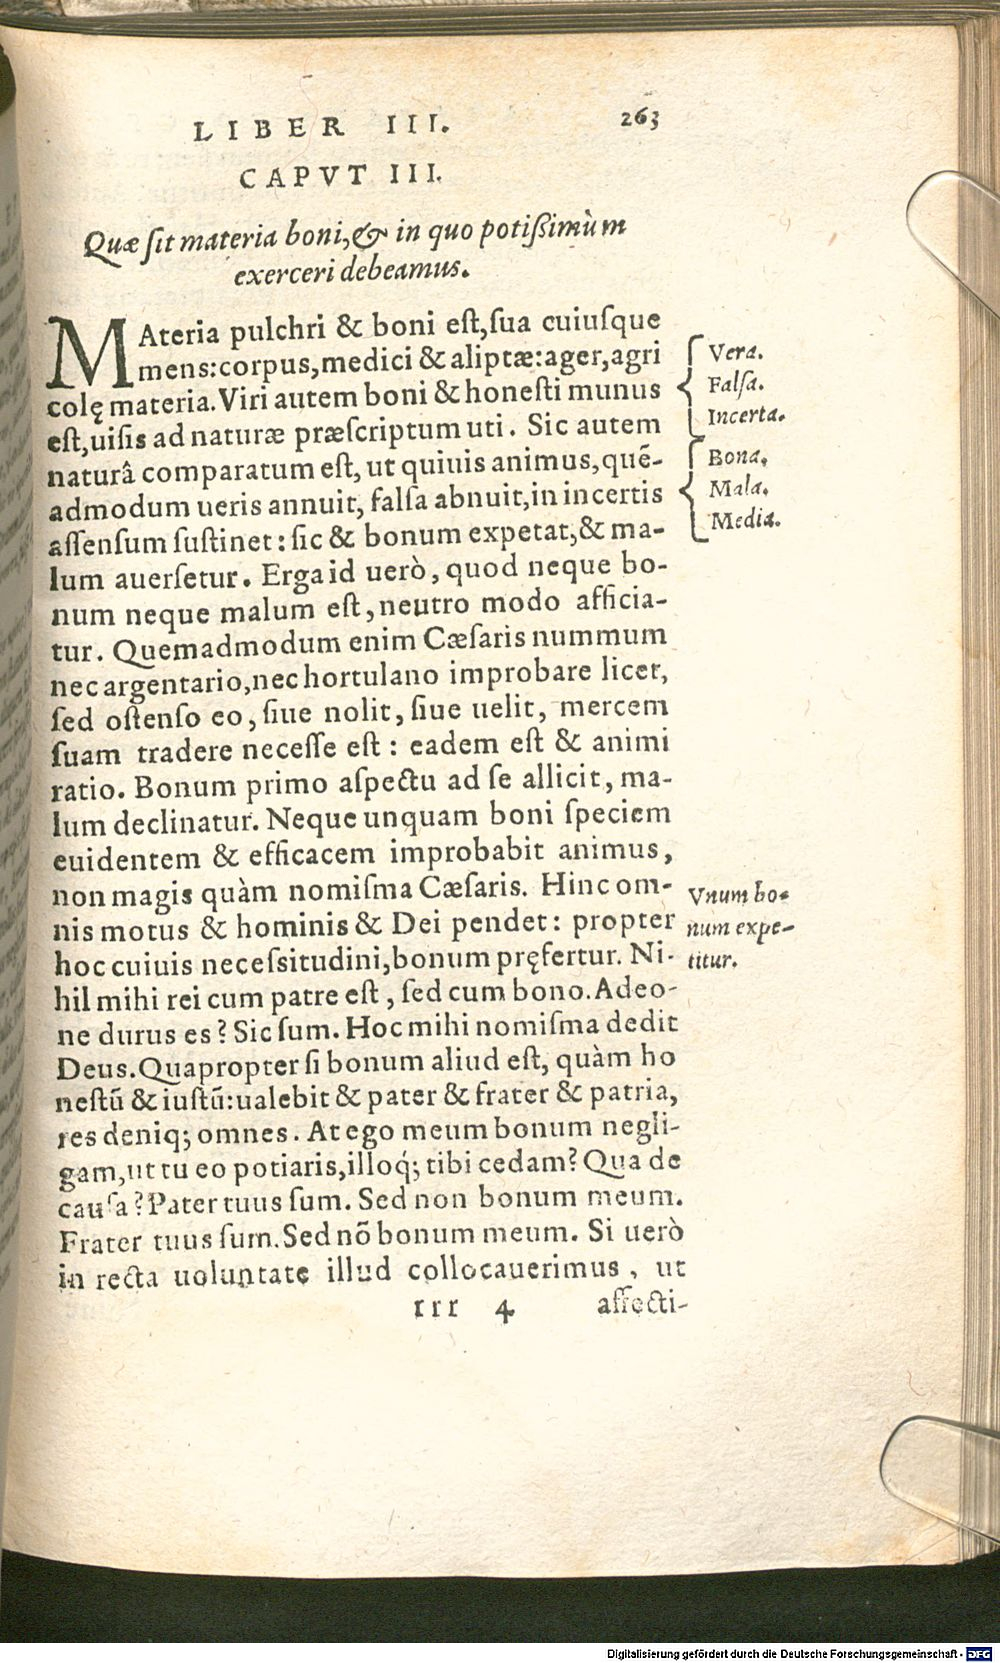 LIBER III. 263
CAPVT III.
Quæ ſit materia boni, & in quo potiſsimùm
exerceri debeamus.
MAteria pulchri & boni eſt, ſua cuiuſque
mens: corpus, medici & aliptæ: ager, agri
colę materia. Viri autem boni & honeſti munus
eſt, uiſis ad naturæ præſcriptum uti. Sic autem
naturâ comparatum eſt, ut quiuis animus, quē-
admodum ueris annuit, falſa abnuit, in incertis
aſſenſum ſuſtinet: ſic & bonum expetat, & ma-
lum auerſetur. Erga id uerò, quod neque bo-
num neque malum eſt, neutro modo afficia-
tur. Quemadmodum enim Cæſaris nummum
nec argentario, nec hortulano improbare licet,
ſed oſtenſo eo, ſiue nolit, ſiue uelit, mercem
ſuam tradere neceſſe eſt: eadem eſt & animi
ratio. Bonum primo aſpectu ad ſe allicit, ma-
lum declinatur. Neque unquam boni ſpeciem
euidentem & efficacem improbabit animus,
non magis quàm nomiſma Cæſaris. Hinc om-
nis motus & hominis & Dei pendet: propter
hoc cuiuis neceſsitudini, bonum pręfertur. Ni-
hil mihi rei cum patre eſt, ſed cum bono. Adeo-
ne durus es? Sic ſum. Hoc mihi nomiſma dedit
Deus. Quapropter ſi bonum aliud eſt, quàm ho
neſtū & iuſtū: ualebit & pater & frater & patria,
res deniq; omnes. At ego meum bonum negli-
gam, ut tu eo potiaris, illoq́; tibi cedam? Qua de
cauſa? Pater tuus ſum. Sed non bonum meum.
Frater tuus ſum. Sed nō bonum meum. Si uerò
in recta uoluntate illud collocauerimus, ut
rrr 4 affecti-
Vera.
Falſa.
Incerta.
Bona.
Mala.
Media.
Vnum bo-
num expe-
titur.
Digitalisierung gefördert durch die Deutsche Forschungsgemeinschaft - DFG